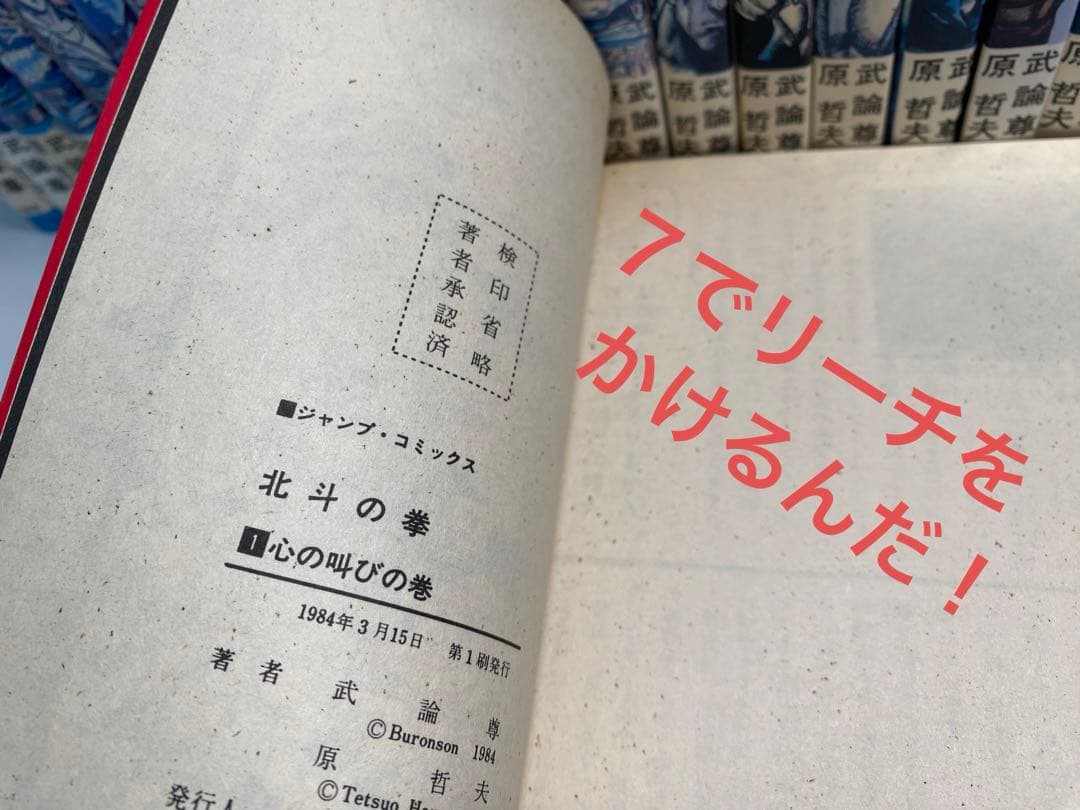 武論尊
原哲夫
武論尊
原哲夫
武論尊
原哲夫
武論尊
原哲夫
武
原哲夫
武論尊
原哲夫
検印省略
著者承認済
■ジャンプ・コミックス
北斗の拳
1心の叫びの巻
1984年3月15日 第1刷発行
著者 武論尊
©Buronson 1984
原哲夫
©Tetsuo
発行人
7でリーチを
かけるんだ!